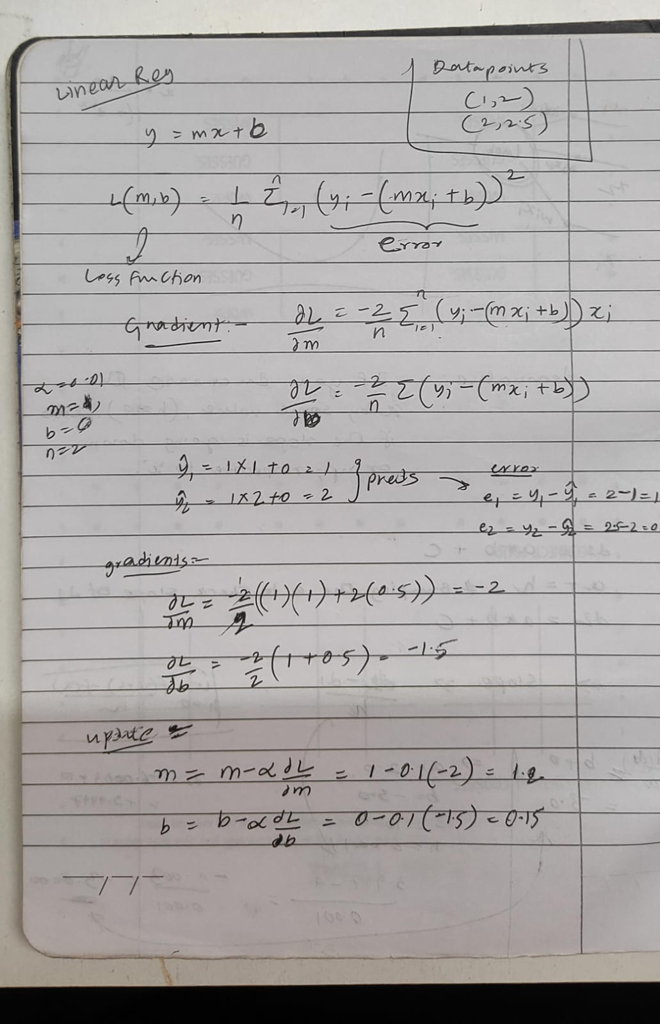 Linear Reg
Datapoints
(1,2)
(2,2.5)
y = mx + b
L(m,b) = 1/n Σᵢ₌₁ⁿ (yᵢ - (mxᵢ + b))²
error
Loss function
Gradient:- ∂L/∂m = -2/n Σᵢ₌₁ⁿ (yᵢ - (mxᵢ + b)) xᵢ
∂L/∂b = -2/n Σ (yᵢ - (mxᵢ + b))
α = 0.01
m = 1,
b = 0
n = 2
ŷ₁ = 1×1 + 0 = 1
ŷ₂ = 1×2 + 0 = 2
} preds →
error
e₁ = y₁ - ŷ₁ = 2-1 = 1
e₂ = y₂ - ŷ₂ = 2.5-2 = 0
gradients:-
∂L/∂m = -2/2 ((1)(1) + 2(0.5)) = -2
∂L/∂b = -2/2 (1 + 0.5) = -1.5
update =
m = m - α ∂L/∂m = 1 - 0.1(-2) = 1.2
b = b - α ∂L/∂b = 0 - 0.1(-1.5) = 0.15